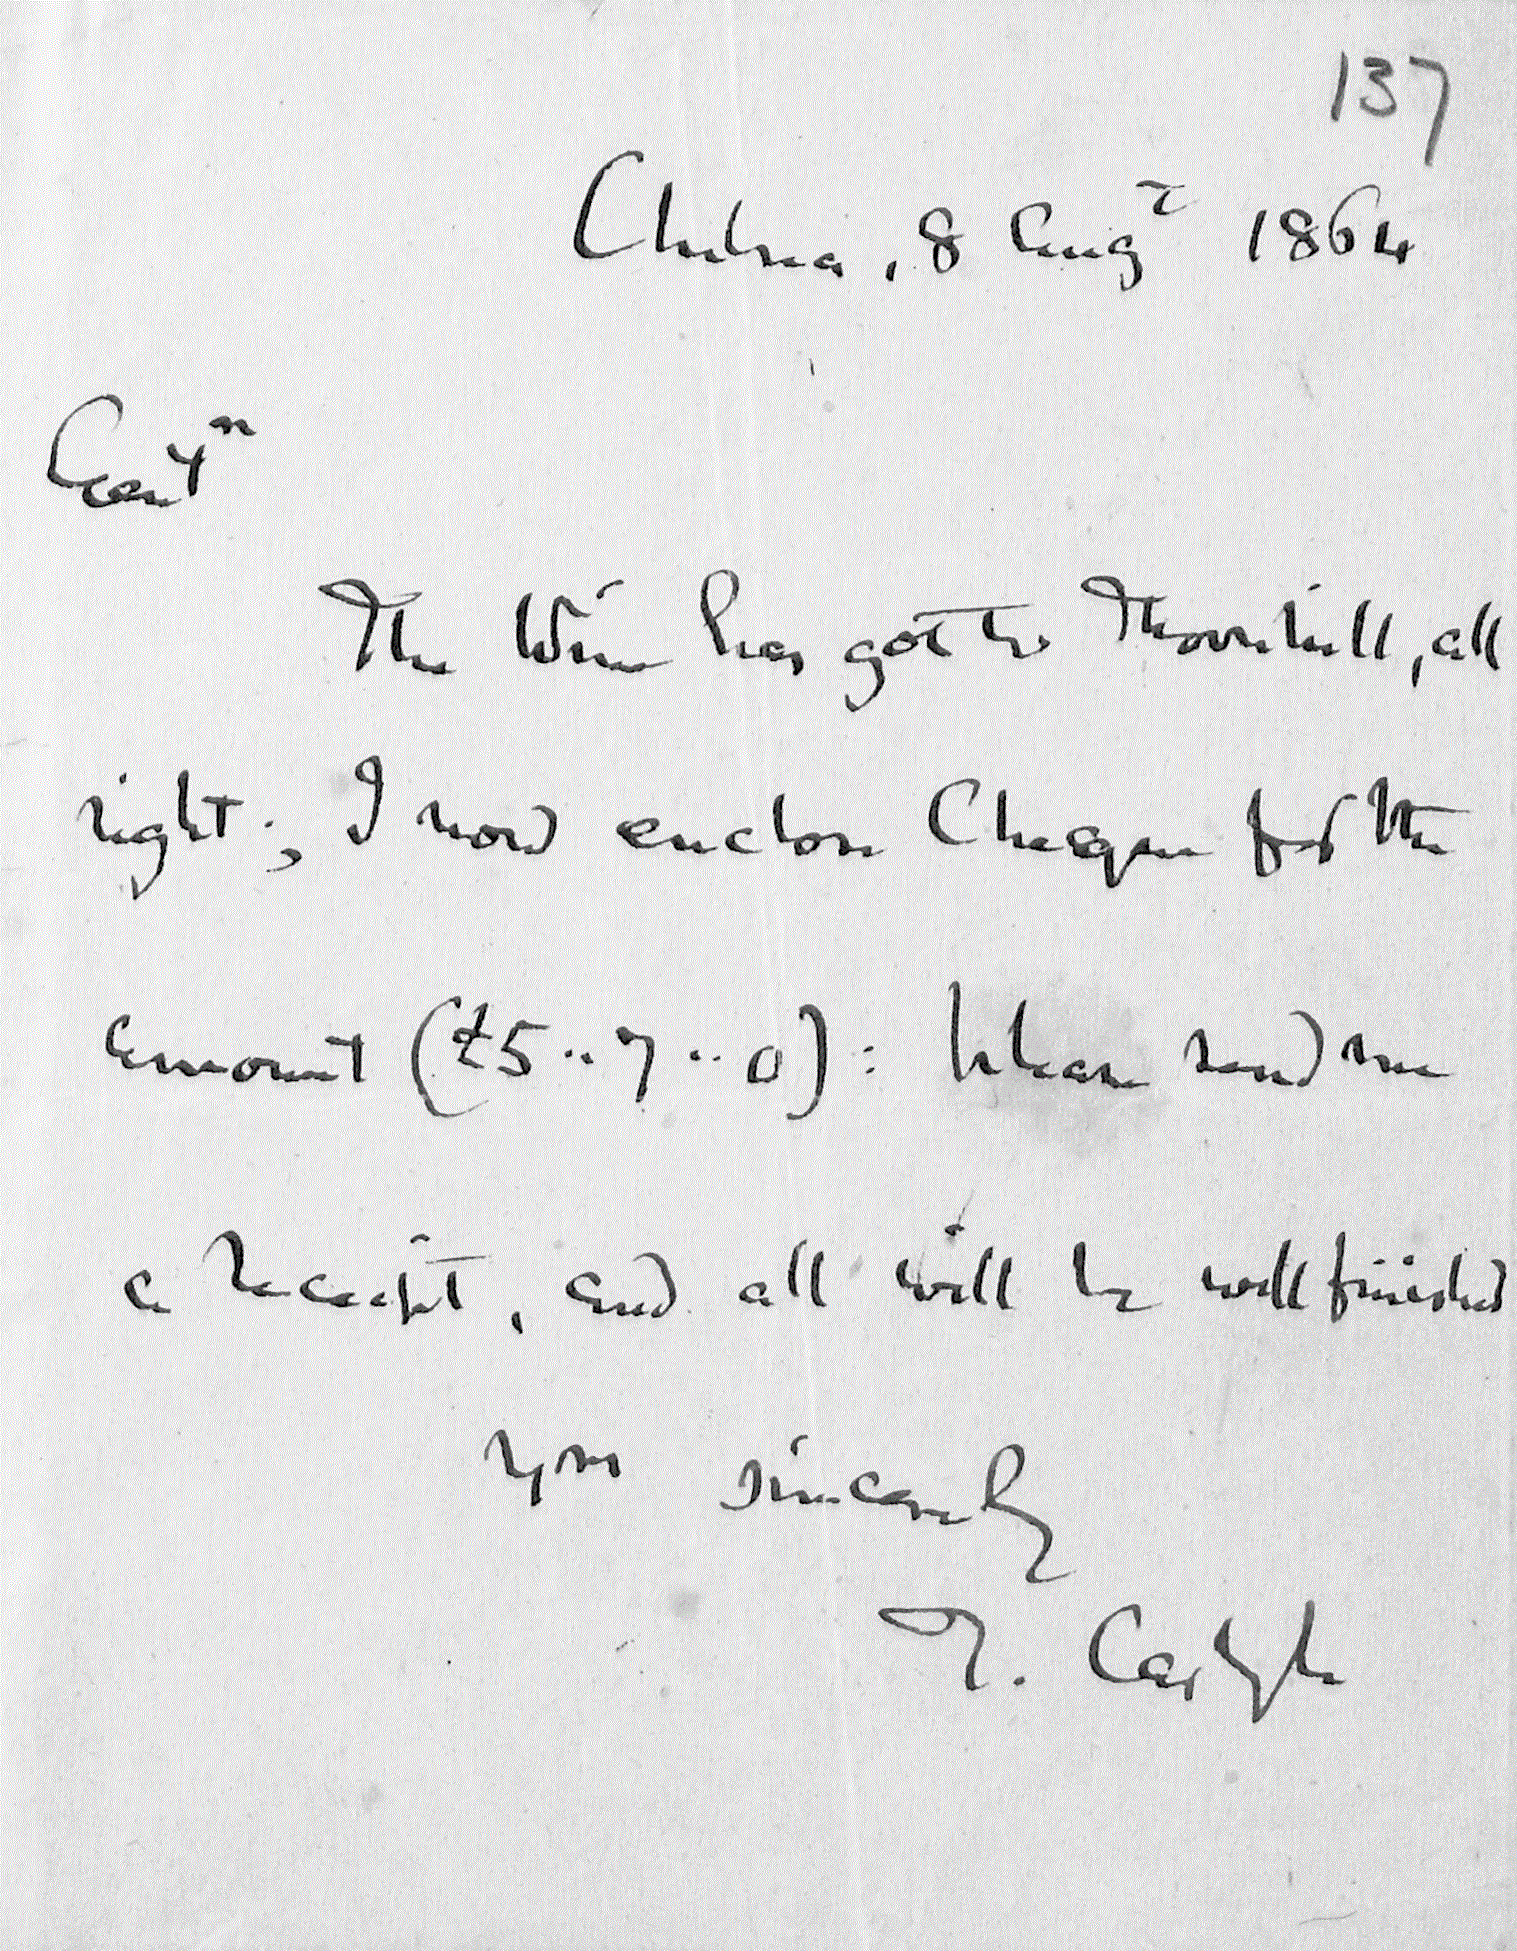 137
Chelsea, 8 Augt 1864
Gentn
The Wine has got to Thornhill, all
right; I now enclose Cheque for the
amount (£5..7..0): please send me
a receipt, and all will be well finished
Yrs sincerely
T. Carlyle